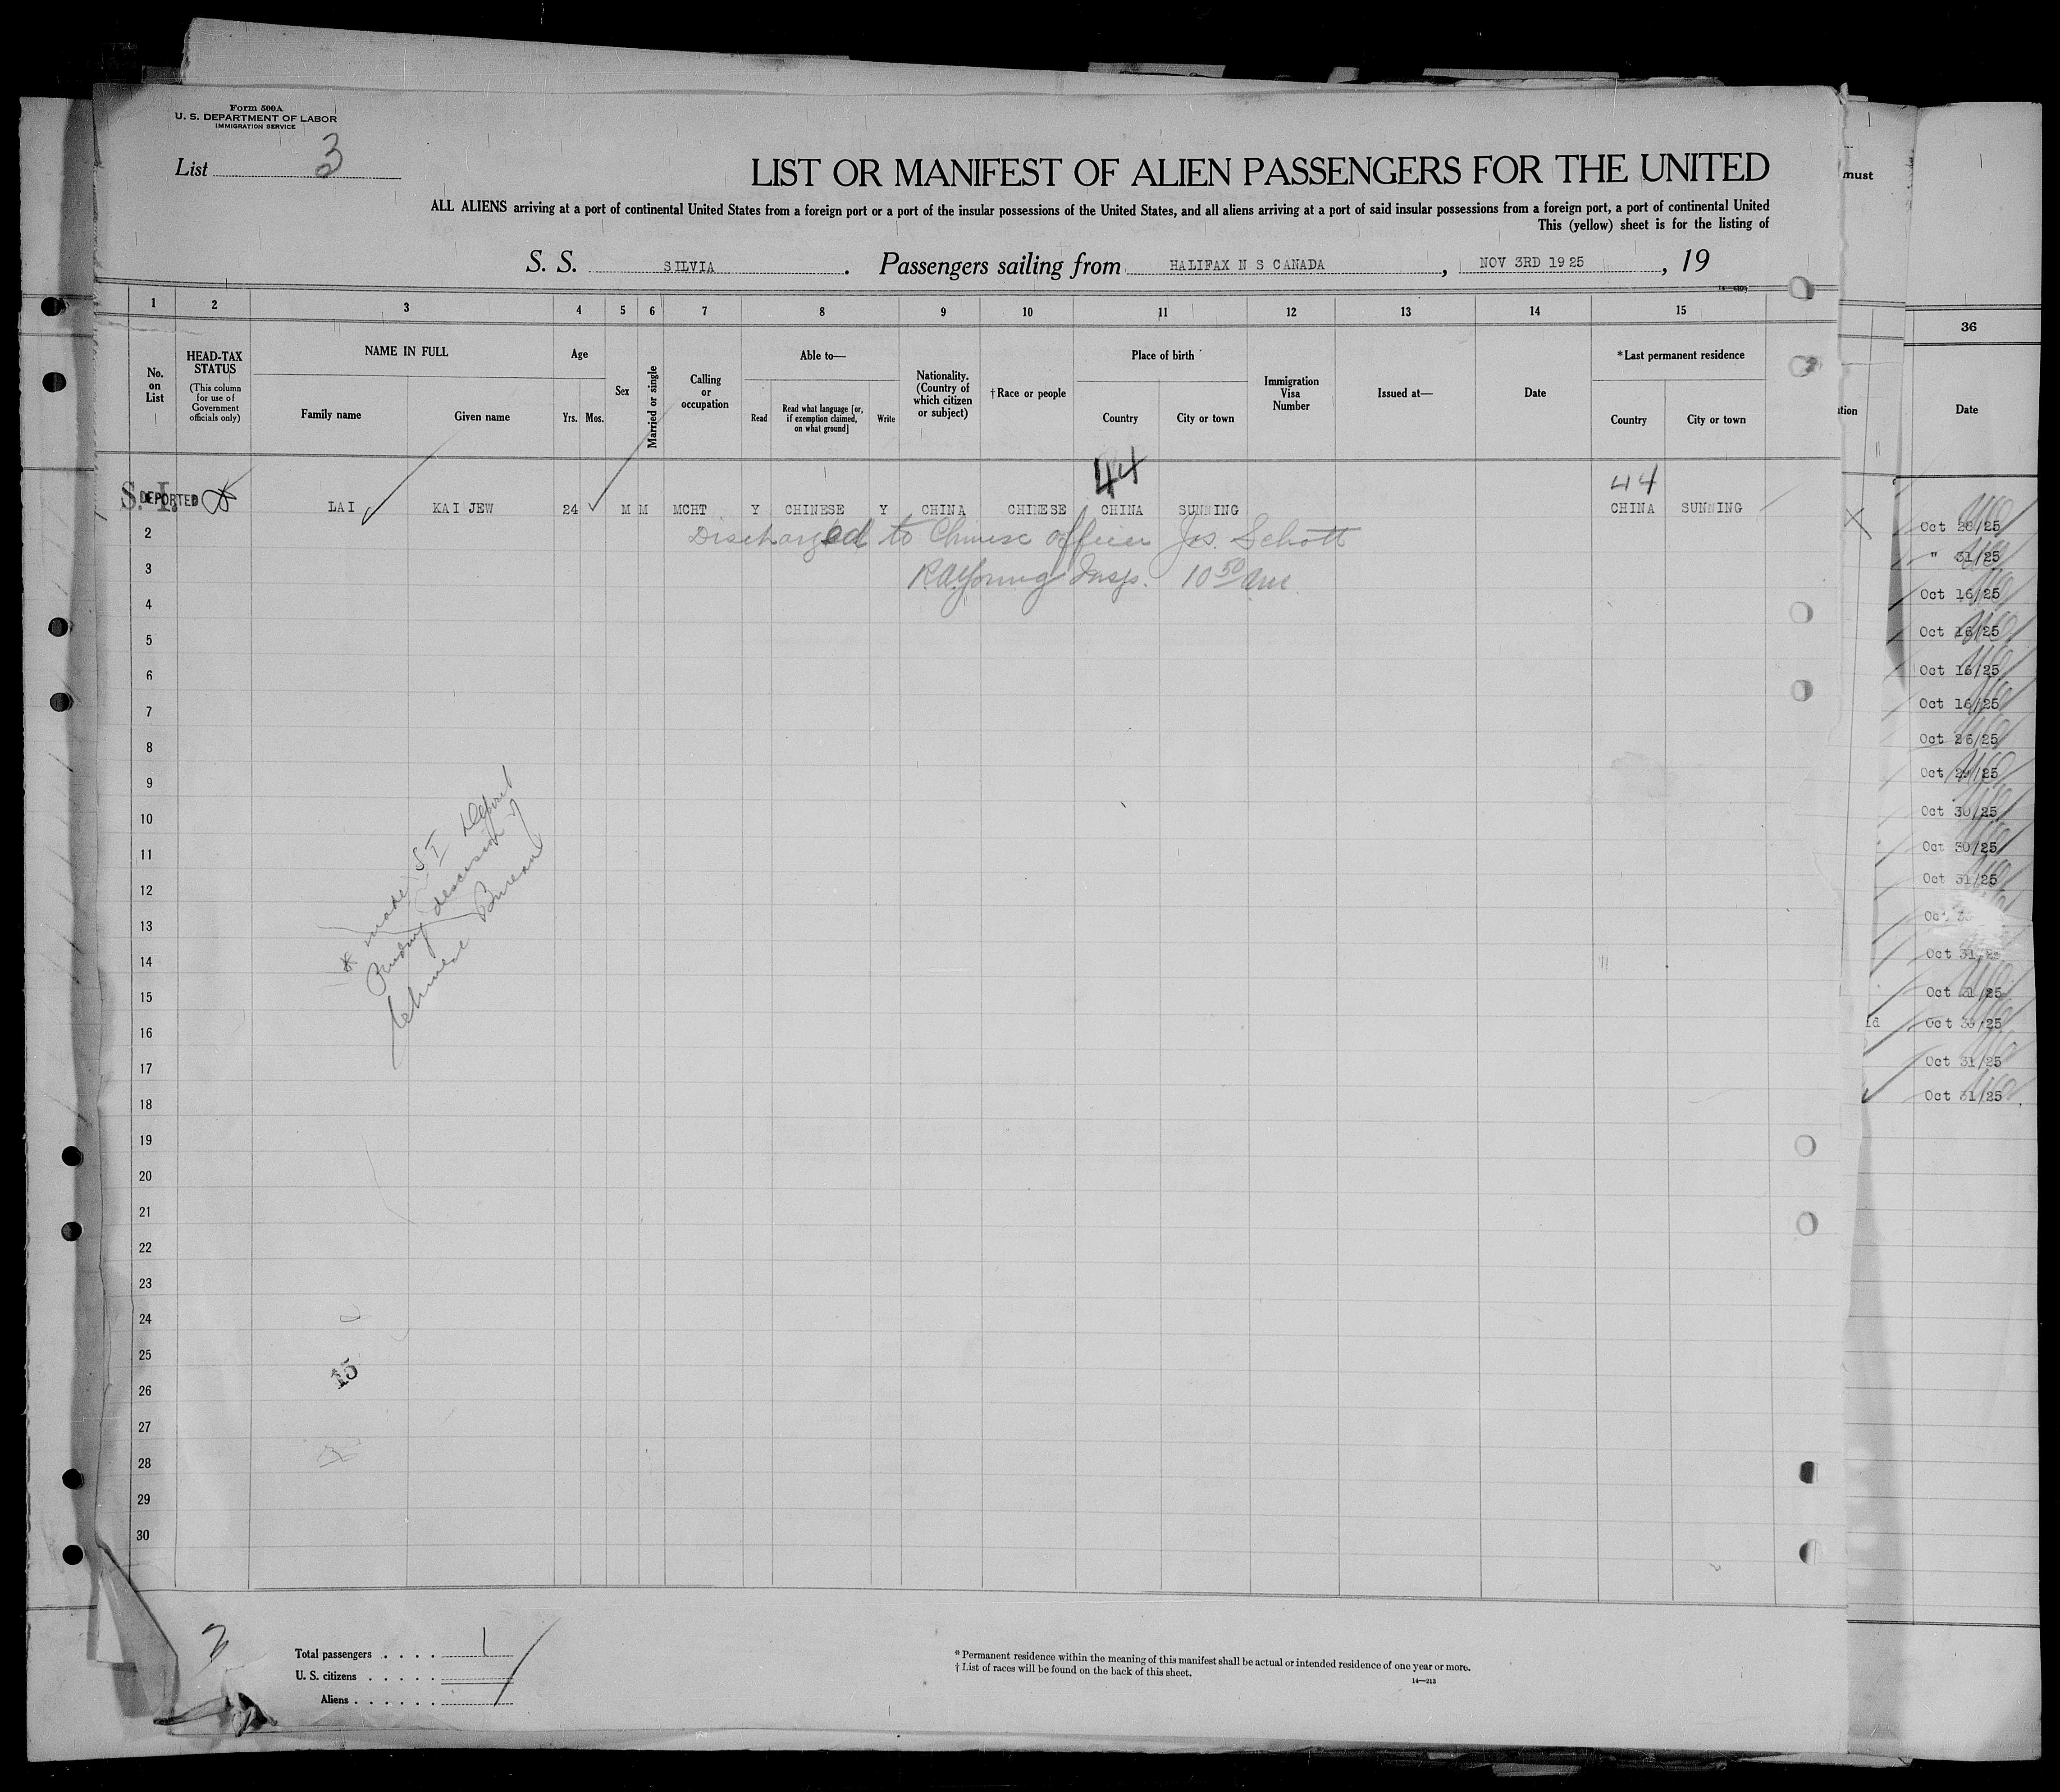 Form 500A
U. S. DEPARTMENT OF LABOR
IMMIGRATION SERVICE
List 3
LIST OR MANIFEST OF ALIEN PASSENGERS FOR THE UNITED
must
ALL ALIENS arriving at a port of continental United States from a foreign port or a port of the insular possessions of the United States, and all aliens arriving at a port of said insular possessions from a foreign port, a port of continental United
This (yellow) sheet is for the listing of
S. S. SILVIA. Passengers sailing from HALIFAX N S CANADA, NOV 3RD 1925, 19
1 2 3 4 5 6 7 8 9 10 11 12 13 14 15 36
No. on List
HEAD-TAX STATUS
(This column for use of Government officials only)
NAME IN FULL
Family name
Given name
Age
Yrs. Mos.
Sex
Married or single
Calling or occupation
Able to—
Read
Read what language [or, if exemption claimed, on what ground]
Write
Nationality. (Country of which citizen or subject)
† Race or people
Place of birth
Country
City or town
Immigration Visa Number
Issued at—
Date
*Last permanent residence
Country
City or town
Date
44 44
S. I. DEPORTED LAI KAI JEW 24 M M MCHT Y CHINESE Y CHINA CHINESE CHINA SUNNING CHINA SUNNING
2 Discharged to Chinese officer Jos. Schott
3 R A Young Insp. 10 50 AM
4
5
6
7
8
9
10
11
12
13
14
15
16
17
18
19
20
21
22
23
24
25
26
27
28
29
30
* made S I
Pending decision of
Chinese Bureau
15
Oct 26/25
" 31/25
Oct 16/25
Oct 16/25
Oct 16/25
Oct 16/25
Oct 26/25
Oct 29/25
Oct 30/25
Oct 30/25
Oct 31/25
Oct
Oct 31/25
Oct 31/25
Oct 30/25
Oct 31/25
Oct 31/25
3
Total passengers . . . . 1
U. S. citizens . . . . .
Aliens . . . . . .
* Permanent residence within the meaning of this manifest shall be actual or intended residence of one year or more.
† List of races will be found on the back of this sheet.
14—213